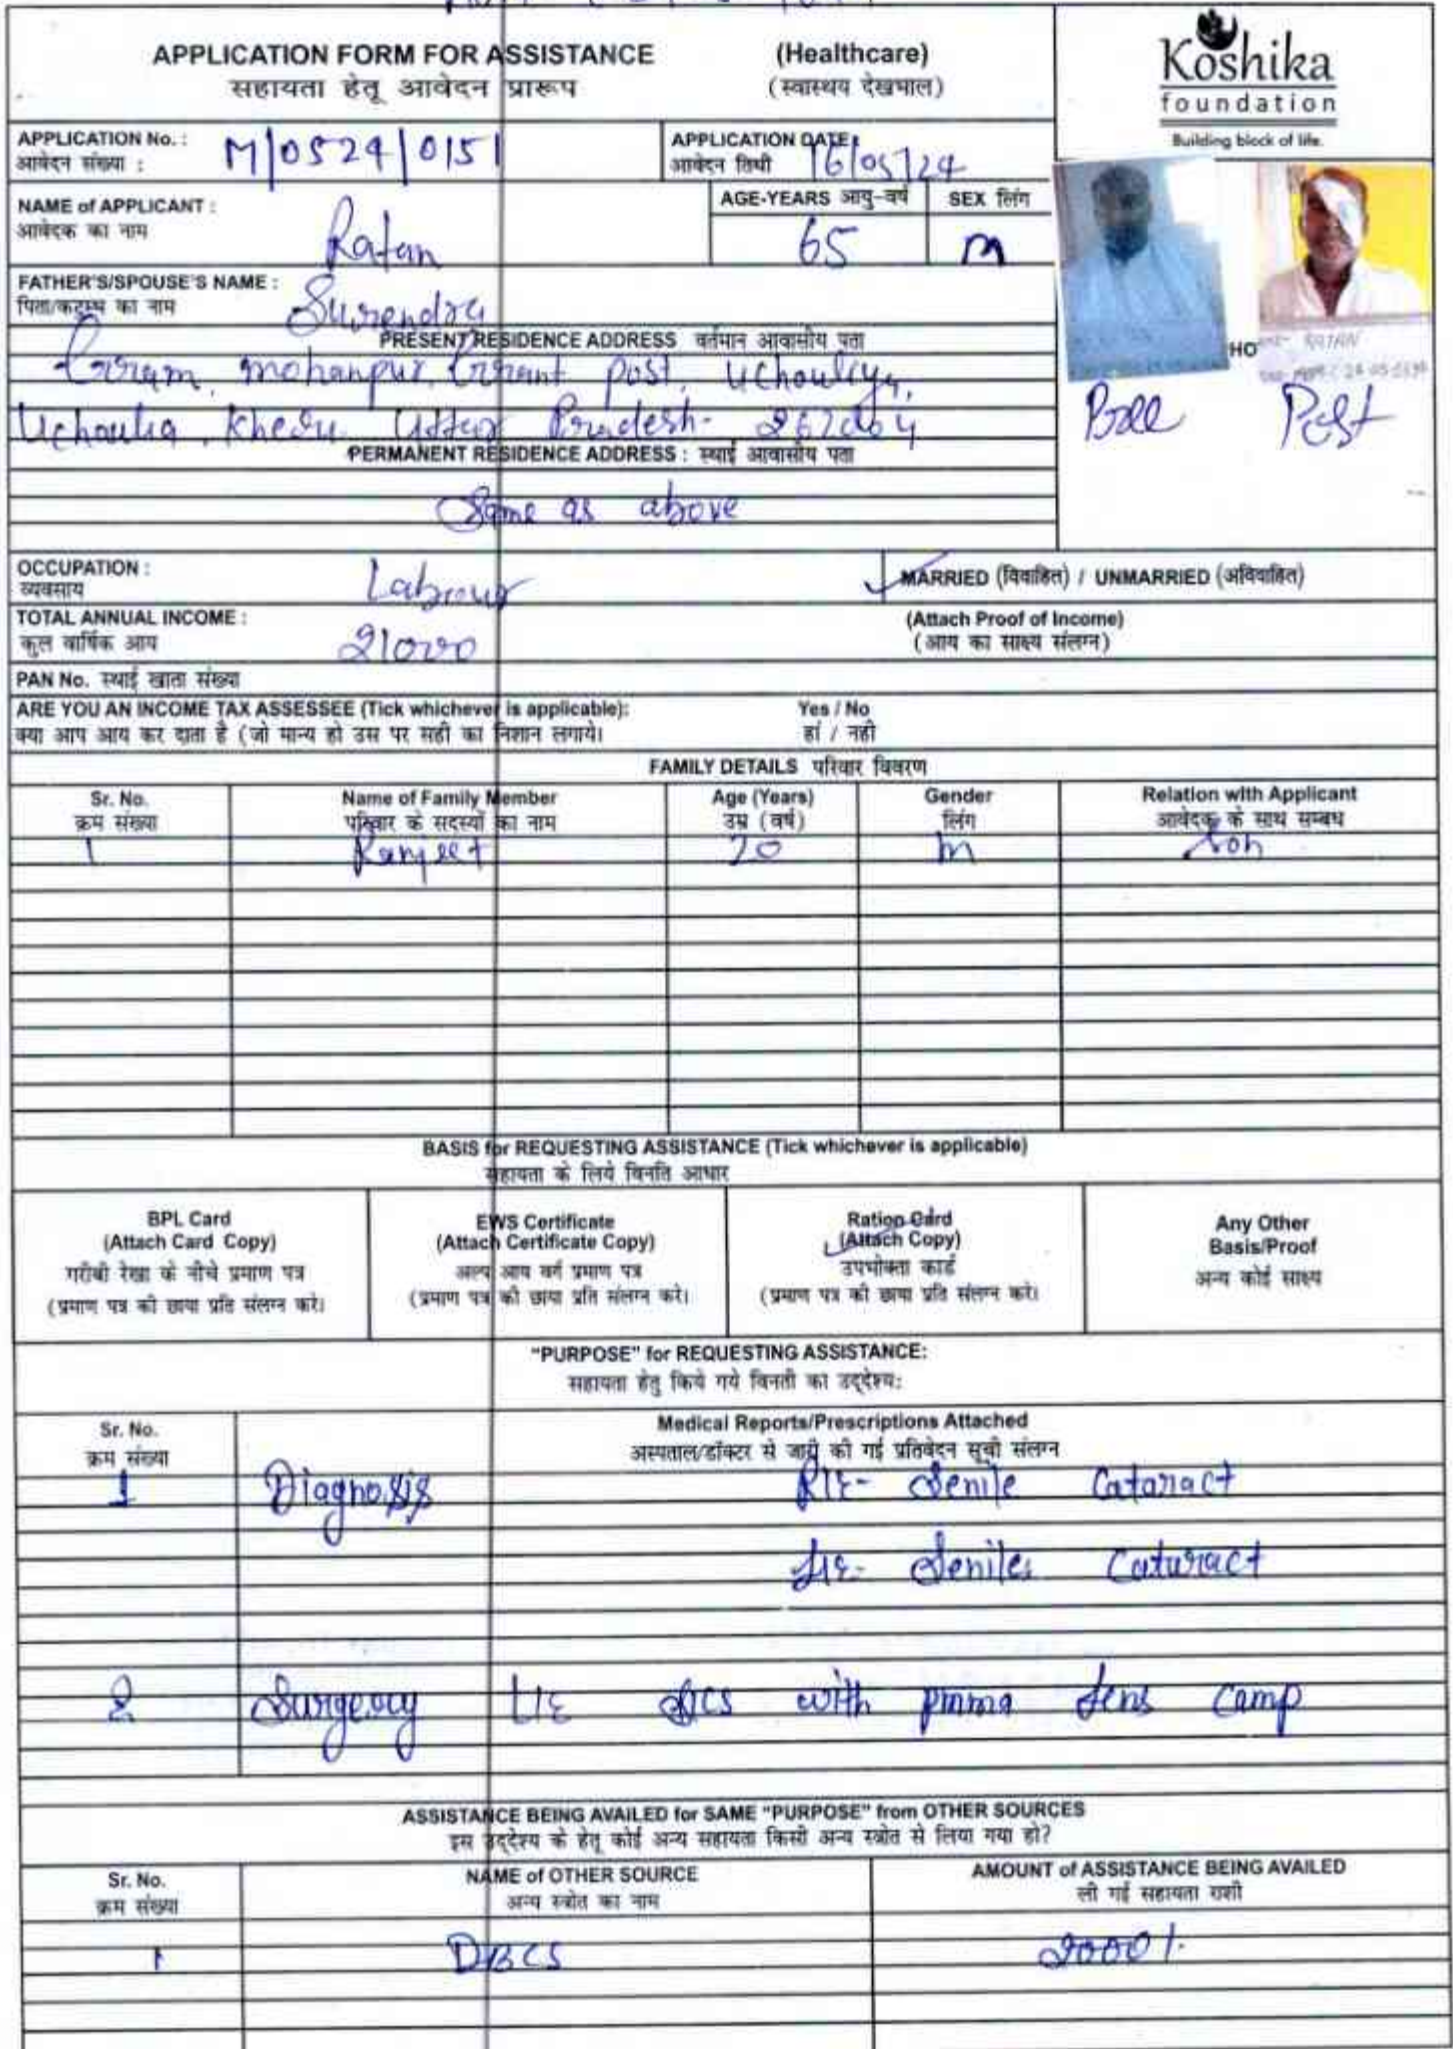 APPLICATION FORM FOR ASSISTANCE (Healthcare)
सहायता हेतू आवेदन प्रारूप (स्वास्थय देखभाल)
Koshika
foundation
Building block of life.
APPLICATION No. : M/0524/0151
आवेदन संख्या :
APPLICATION DATE : 16/05/24
आवेदन तिथी
NAME of APPLICANT : Ratan
आवेदक का नाम
AGE-YEARS आयु-वर्ष 65
SEX लिंग M
FATHER'S/SPOUSE'S NAME : Surendra
पिता/कटुम्ब का नाम
PRESENT RESIDENCE ADDRESS वर्तमान आवासीय पता
mohanpur, Grant post,
Uttar Pradesh-
PERMANENT RESIDENCE ADDRESS : स्थाई आवासीय पता
Same as above
HO
RATAN
Pre Post
OCCUPATION : Labour
व्यवसाय
MARRIED (विवाहित) / UNMARRIED (अविवाहित)
TOTAL ANNUAL INCOME : 21000
कुल वार्षिक आय
(Attach Proof of Income)
(आय का साक्ष्य संलग्न)
PAN No. स्थाई खाता संख्या
ARE YOU AN INCOME TAX ASSESSEE (Tick whichever is applicable): Yes / No
क्या आप आय कर दाता है (जो मान्य हो उस पर सही का निशान लगाये। हां / नही
FAMILY DETAILS परिवार विवरण
Sr. No. Name of Family Member Age (Years) Gender Relation with Applicant
क्रम संख्या परिवार के सदस्यों का नाम उम्र (वर्ष) लिंग आवेदक के साथ सम्बध
1 Ranjeet 20 m son
BASIS for REQUESTING ASSISTANCE (Tick whichever is applicable)
सहायता के लिये विनति आधार
BPL Card
(Attach Card Copy)
गरीबी रेखा के नीचे प्रमाण पत्र
(प्रमाण पत्र की छाया प्रति संलग्न करे।
EWS Certificate
(Attach Certificate Copy)
अल्प आय वर्ग प्रमाण पत्र
(प्रमाण पत्र की छाया प्रति संलग्न करे।
Ration Card
(Attach Copy)
उपभोक्ता कार्ड
(प्रमाण पत्र की छाया प्रति संलग्न करे।
Any Other
Basis/Proof
अन्य कोई साक्ष्य
"PURPOSE" for REQUESTING ASSISTANCE:
सहायता हेतु किये गये विनती का उद्देश्य:
Sr. No. Medical Reports/Prescriptions Attached
क्रम संख्या अस्पताल/डॉक्टर से जारी की गई प्रतिवेदन सूची संलग्न
1 Diagnosis R/E- Senile Cataract
L/E- Senile Cataract
2 Surgery L/E SICS with pmma lens camp
ASSISTANCE BEING AVAILED for SAME "PURPOSE" from OTHER SOURCES
इस उद्देश्य के हेतू कोई अन्य सहायता किसी अन्य स्त्रोत से लिया गया हो?
Sr. No. NAME of OTHER SOURCE AMOUNT of ASSISTANCE BEING AVAILED
क्रम संख्या अन्य स्त्रोत का नाम ली गई सहायता राशी
1 DBCS 2000/-